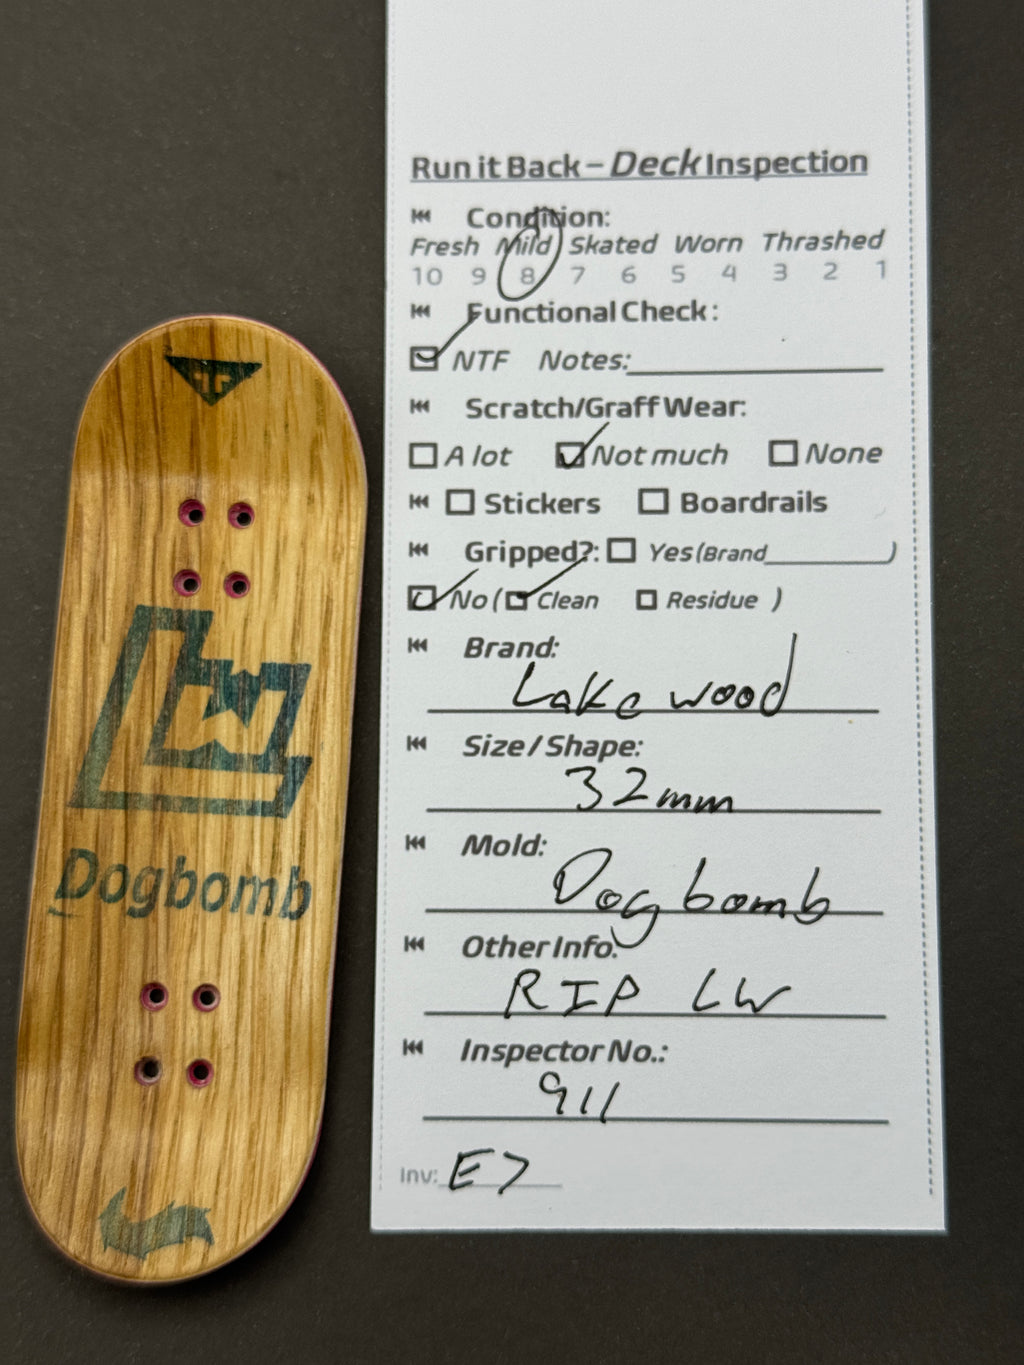 Run it Back – Deck Inspection
Condition:
Fresh Mild Skated Worn Thrashed
10 9 8 7 6 5 4 3 2 1
Functional Check:
NTF Notes:
Scratch/Graff Wear:
A lot Not much None
Stickers Boardrails
Gripped?: Yes (Brand )
No ( Clean Residue )
Brand:
Lakewood
Size / Shape:
32mm
Mold:
Dogbomb
Other Info:
RIP LW
Inspector No.:
911
Inv: E7
LW
Dogbomb